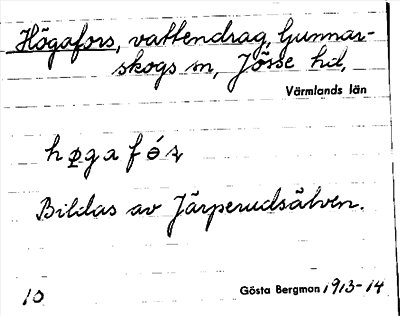 Högafors, vattendrag, Gunnar-
skogs sn, Jösse hd,
Värmlands län
Bildas av Järperudsälven.
10
Gösta Bergman 1913-14